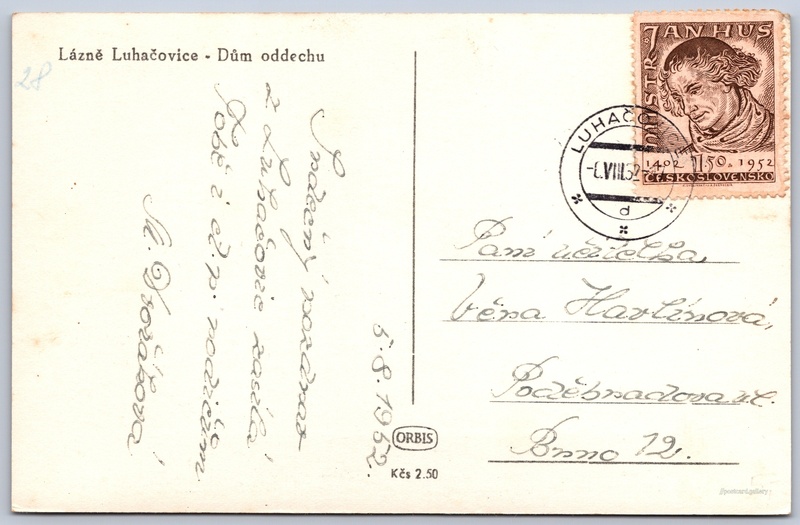 Lázně Luhačovice - Dům oddechu
28
Srdečný pozdrav
z Luhačovic zasílá
Tobě i ct. p. rodičům
M. Dvořáková
5.8.1952.
ORBIS
Kčs 2.50
MISTR JAN HUS
1402 1.50 1952
ČESKOSLOVENSKO
LUHAČOVICE
-6.VIII.52
d
Paní učitelka
Věna Havlínová,
Poděbradova ul.
Brno 12.